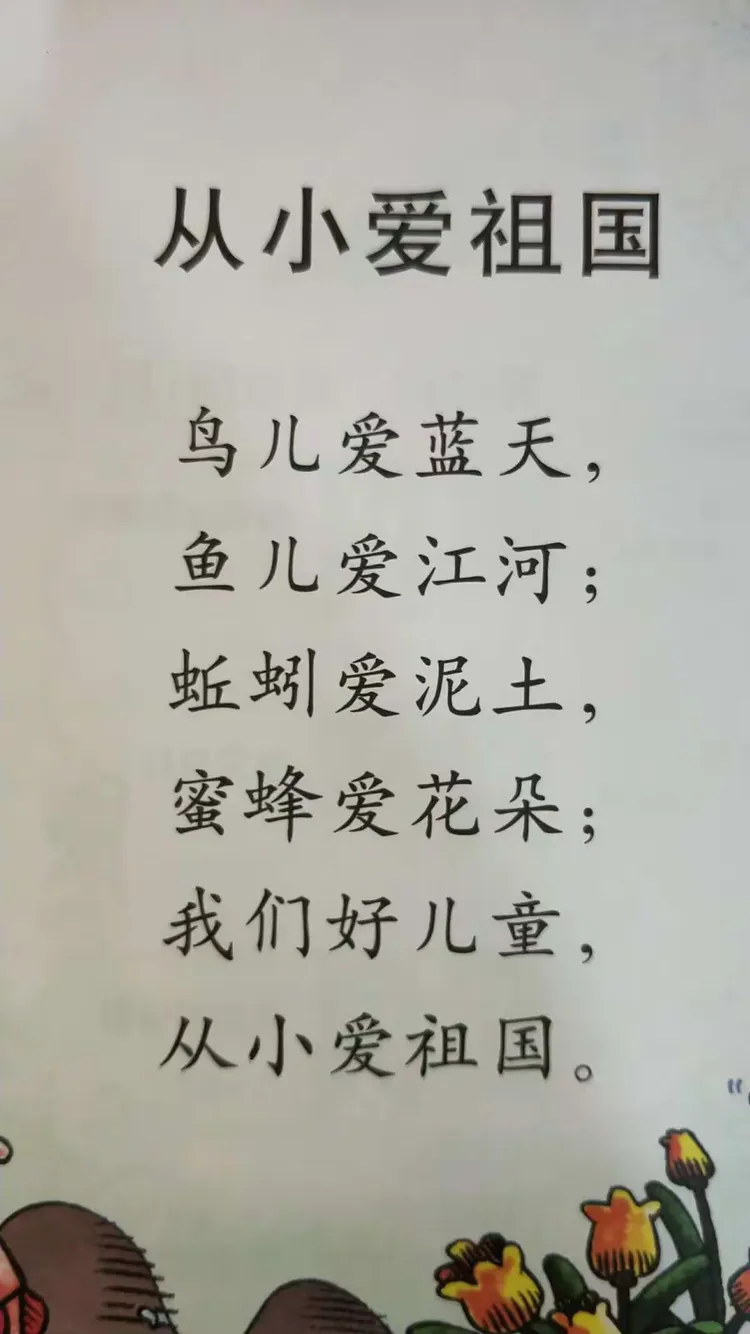 从小爱祖国
鸟儿爱蓝天，
鱼儿爱江河；
蚯蚓爱泥土，
蜜蜂爱花朵；
我们好儿童，
从小爱祖国。